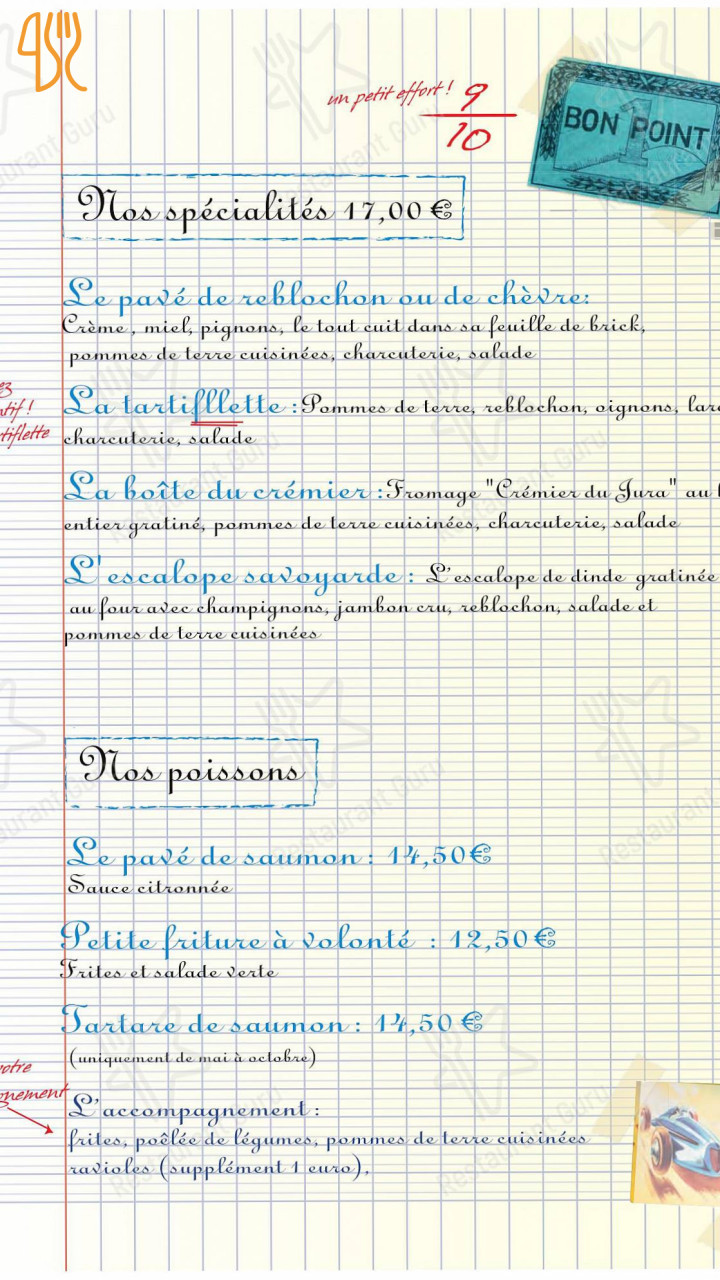 un petit effort ! 9
10
BON POINT
1
Nos spécialités 17,00 €
Le pavé de reblochon ou de chèvre:
Crème, miel, pignons, le tout cuit dans sa feuille de brick,
pommes de terre cuisinées, charcuterie, salade
La tartifllette : Pommes de terre, reblochon, oignons,
tiflette
charcuterie, salade
La boîte du crémier : Fromage "Crémier du Jura" au
entier gratiné, pommes de terre cuisinées, charcuterie, salade
L'escalope savoyarde : L'escalope de dinde gratinée
au four avec champignons, jambon cru, reblochon, salade et
pommes de terre cuisinées
Nos poissons
Le pavé de saumon : 14,50€
Sauce citronnée
Petite friture à volonté : 12,50€
Frites et salade verte
Tartare de saumon : 14,50 €
(uniquement de mai à octobre)
L'accompagnement :
frites, poêlée de légumes, pommes de terre cuisinées
ravioles (supplément 1 euro),
Restaurant Guru